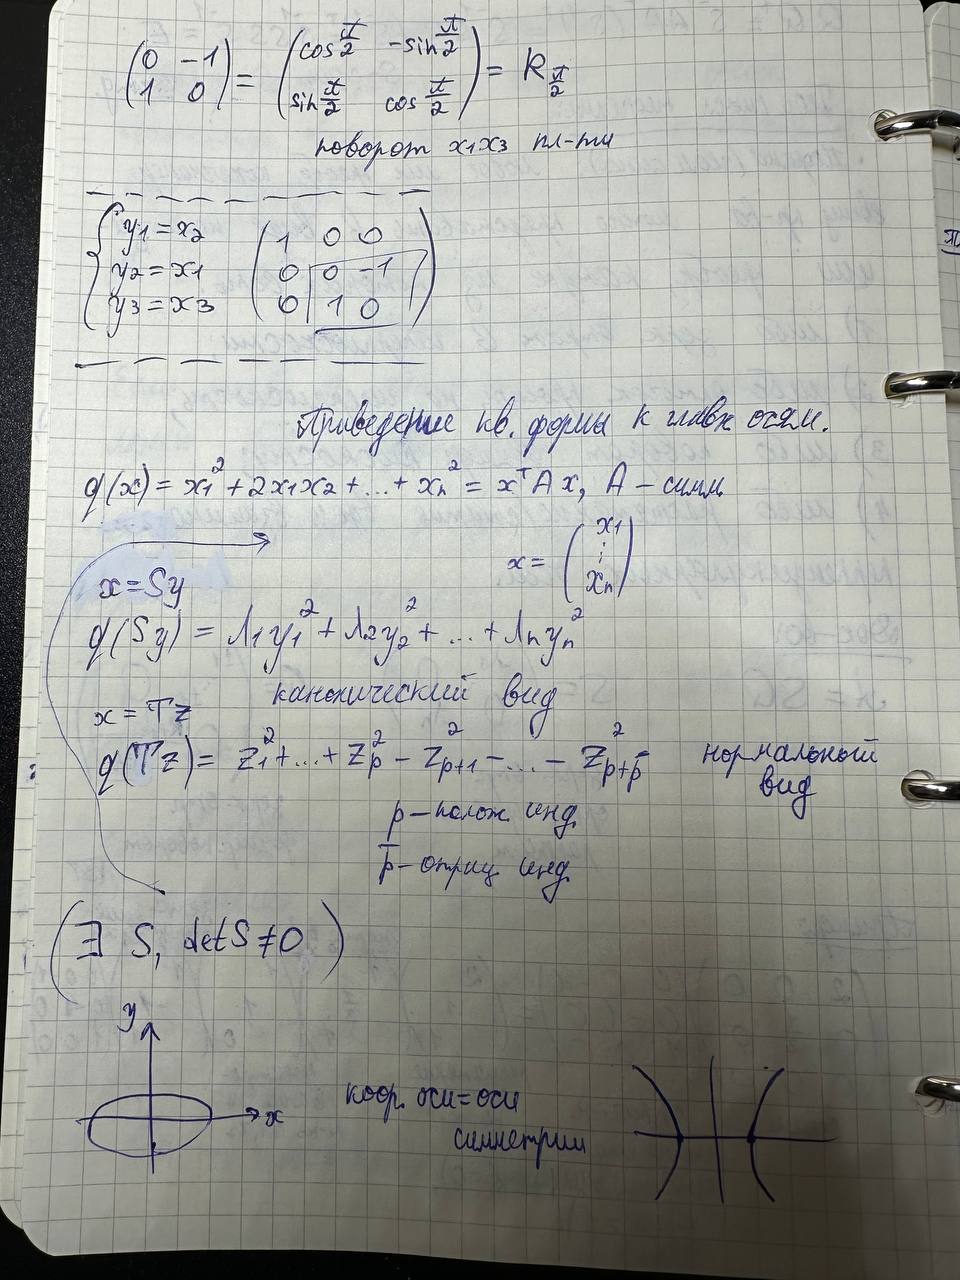 (0 −1
1 0) = (cos π/2 −sin π/2
sin π/2 cos π/2) = R π/2
поворот x₁x₃ пл-ти
{ y₁ = x₂
y₂ = x₁
y₃ = x₃
(1 0 0
0 0 −1
0 1 0)
Приведение кв. формы к главн осям.
q(x) = x₁² + 2x₁x₂ + ... + xₙ² = xᵀAx, A – симм
x = (x₁
⋮
xₙ)
x = Sy
q(Sy) = λ₁y₁² + λ₂y₂² + ... + λₙyₙ²
канонический вид
x = Tz
q(Tz) = z₁² + ... + z_p² − z_{p+1}² − ... − z_{p+p̄}² нормальный
вид
p – полож инд.
p̄ – отриц инд.
(∃ S, det S ≠ 0)
y
x
коор. оси = оси
симметрии